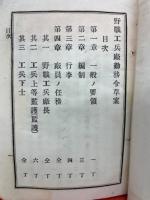 野戰工兵廠勤務令草案
目次
第一章 一般ノ要領 一丁
第二章 編制 二丁
第三章 行李 四丁
第四章 廠員ノ任務 全丁
其一 野戰工兵廠長 全丁
其二 工兵上等監護監護 六丁
其三 工兵下士 全丁
目次